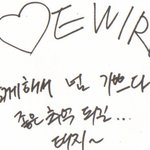 ♡EWIR
께해서 넘 기쁘다
좋은 추억 되길...
태지~